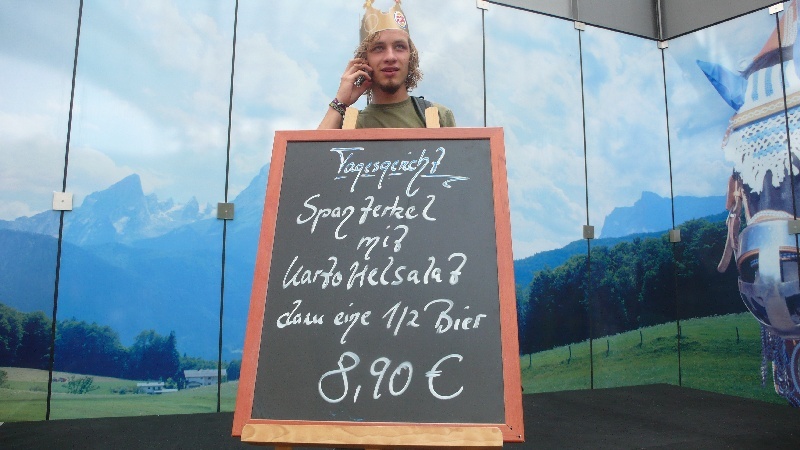 Tagesgericht
Spanferkel
mit
Kartoffelsalat
dazu eine 1/2 Bier
8,90 €